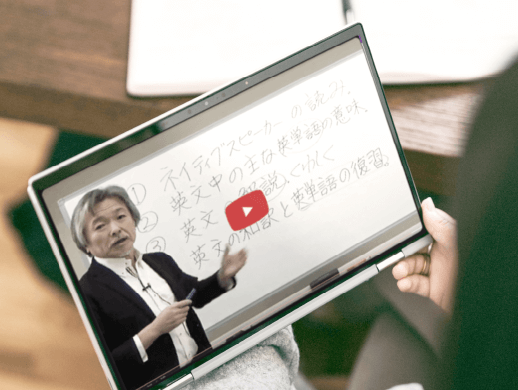 ① ネイティブスピーカーの読み,
② 英文中の主な英単語の意味
③ 英文の解説,
英文の和訳と英単語の復習